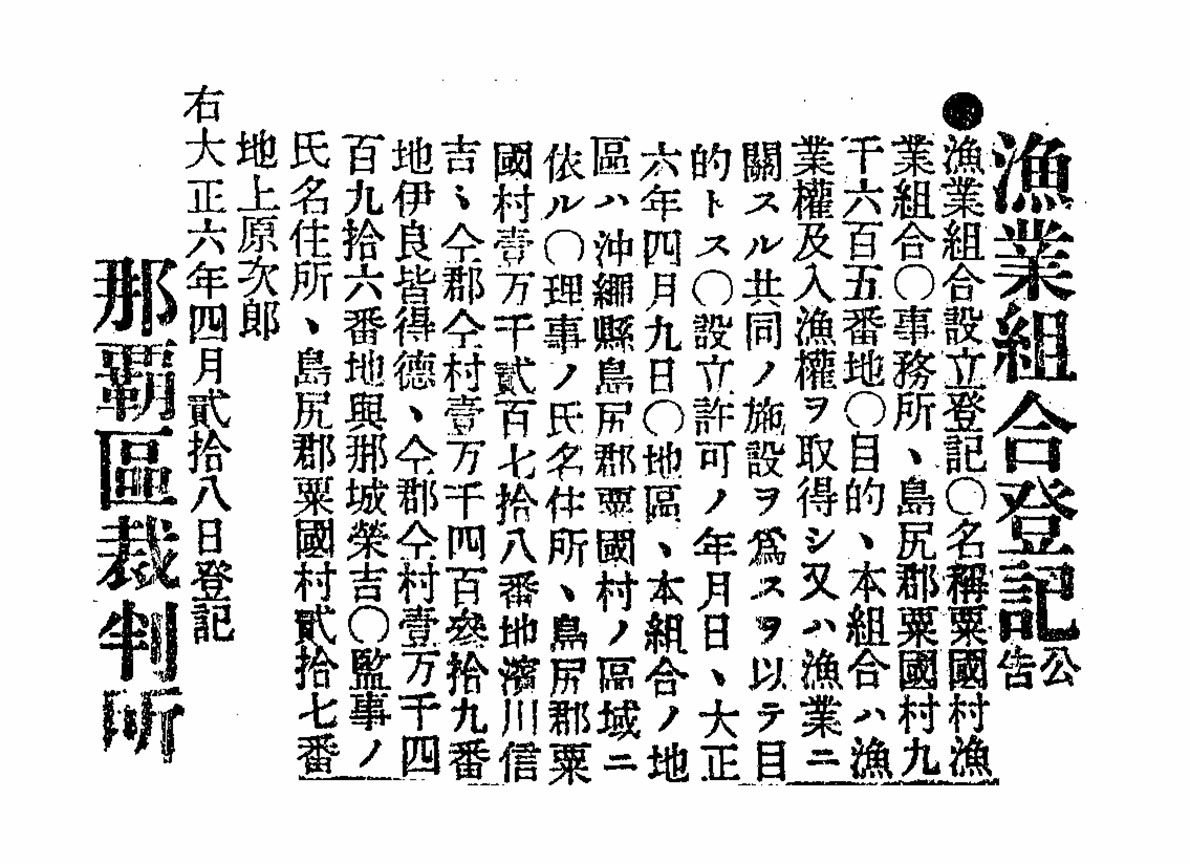 漁業組合登記公告
●漁業組合設立登記〇名稱粟國村漁
業組合〇事務所、島尻郡粟國村九
千六百五番地〇目的、本組合ハ漁
業權及入漁權ヲ取得シ又ハ漁業ニ
關スル共同ノ施設ヲ爲スヲ以テ目
的トス〇設立許可ノ年月日、大正
六年四月九日〇地區、本組合ノ地
區ハ沖繩縣島尻郡粟國村ノ區域ニ
依ル〇理事ノ氏名住所、島尻郡粟
國村壹万千貳百七拾八番地濱川信
吉、仝郡仝村壹万千四百參拾九番
地伊良皆得德、仝郡仝村壹万千四
百九拾六番地與那城榮吉〇監事ノ
氏名住所、島尻郡粟國村貳拾七番
地上原次郎
右大正六年四月貳拾八日登記
那覇區裁判所